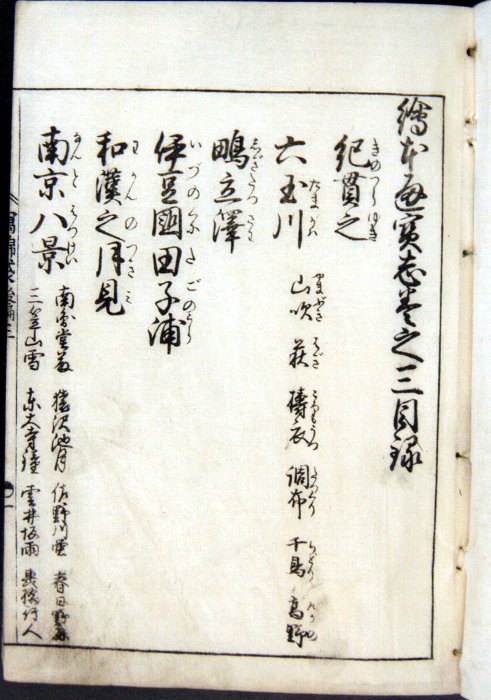 繪本通寳志巻之三目録
紀貫之 きのつらゆき
六玉川 たまかハ 山吹 やまぶき 萩 はぎ 擣衣 ころもうつ 調布 たつくり 千鳥 ちどり 高野 かうや
鴫立澤 しぎたつさわ
伊豆國田子浦 いづのくにたごのうら
和漢之月見 わかんのつきみ
南京八景 なんとはつけい
南圓堂藤 猿沢池月 佐野川蛍 春日野鹿
三笠山雪 東大寺鐘 雲井坂雨 轟橋行人